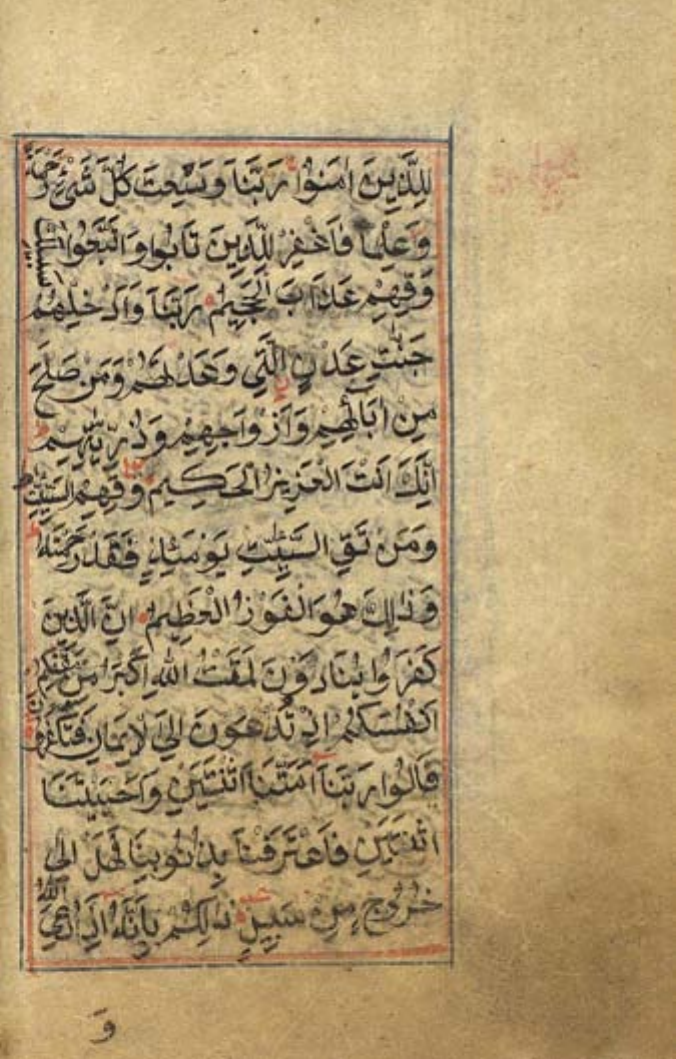 لِلَّذِينَ اٰمَنُوا رَبَّنَا وَسِعْتَ كُلَّ شَىْءٍ رَحْمَةً
وَعِلْمًا فَاغْفِرْ لِلَّذِينَ تَابُوا وَاتَّبَعُوا سَبِيلَكَ
وَقِهِمْ عَذَابَ الْجَحِيمِ رَبَّنَا وَاَدْخِلْهُمْ
جَنّٰتِ عَدْنٍ الَّتِي وَعَدْتَهُمْ وَمَنْ صَلَحَ
مِنْ اٰبَائِهِمْ وَاَزْوَاجِهِمْ وَذُرِّيّٰتِهِمْ
اِنَّكَ اَنْتَ الْعَزِيزُ الْحَكِيمُ وَقِهِمُ السَّيِّئٰتِ ط
وَمَنْ تَقِ السَّيِّئٰتِ يَوْمَئِذٍ فَقَدْ رَحِمْتَهُ
وَذٰلِكَ هُوَ الْفَوْزُ الْعَظِيمُ اِنَّ الَّذِينَ
كَفَرُوا يُنَادَوْنَ لَمَقْتُ اللّٰهِ اَكْبَرُ مِنْ مَقْتِكُمْ
اَنْفُسَكُمْ اِذْ تُدْعَوْنَ اِلَى الْاِيمَانِ فَتَكْفُرُونَ
قَالُوا رَبَّنَا اَمَتَّنَا اثْنَتَيْنِ وَاَحْيَيْتَنَا
اثْنَتَيْنِ فَاعْتَرَفْنَا بِذُنُوبِنَا فَهَلْ اِلٰى
خُرُوجٍ مِنْ سَبِيلٍ ذٰلِكُمْ بِاَنَّهُ اِذَا دُعِيَ اللّٰهُ
وَ